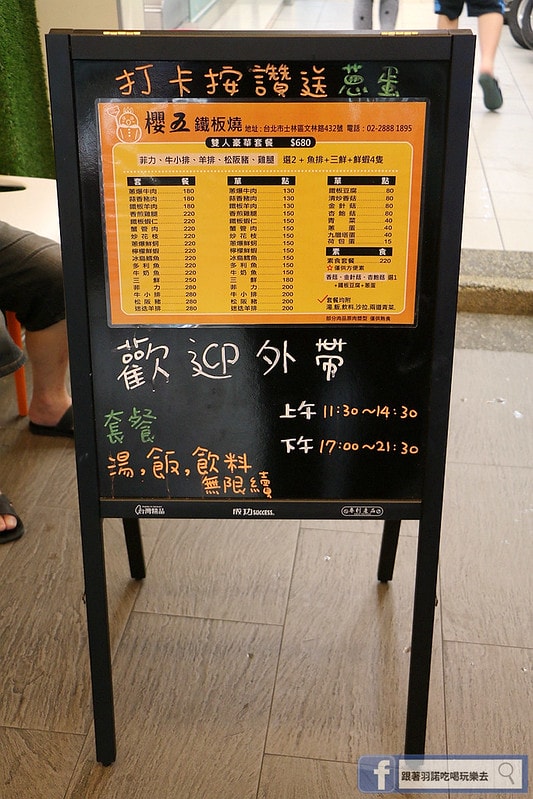 打卡按讚送蔥蛋
櫻五 鐵板燒 地址:台北市士林區文林路432號 電話:02-2888 1895
雙人豪華套餐 $680
菲力、牛小排、羊排、松阪豬、雞腿 選2+魚排+三鮮+鮮蝦4隻
套餐
蔥爆牛肉 180
蒜香豬肉 180
鐵板羊肉 180
香煎雞腿 220
鐵板蝦仁 220
蟹管肉 220
炒花枝 220
蔥爆鮮蚵 220
檸檬鮮蝦 220
冰島鱈魚 220
多利魚 220
牛奶魚 220
三鮮 250
菲力 280
牛小排 280
松阪豬 280
迷迭羊排 280
單點
蔥爆牛肉 130
蒜香豬肉 130
鐵板羊肉 130
香煎雞腿 150
鐵板蝦仁 150
蟹管肉 150
炒花枝 150
蔥爆鮮蚵 150
檸檬鮮蝦 150
冰島鱈魚 150
多利魚 150
牛奶魚 150
三鮮 180
菲力 200
牛小排 200
松阪豬 200
迷迭羊排 200
單點
鐵板豆腐 80
清炒香菇 80
金針菇 80
杏鮑菇 80
青菜 40
蔥蛋 40
九層塔蛋 40
荷包蛋 15
素食
素食套餐 220
☆僅供方便素
香菇、金針菇、杏鮑菇 選1
+鐵板豆腐+蔥蛋
✓套餐均附
湯,飯,飲料,沙拉,兩道青菜,
歡迎外帶
上午 11:30~14:30
套餐
下午 17:00~21:30
湯,飯,飲料
無限續
台灣精品
成功 success.
專利產品
跟著羽諾吃喝玩樂去